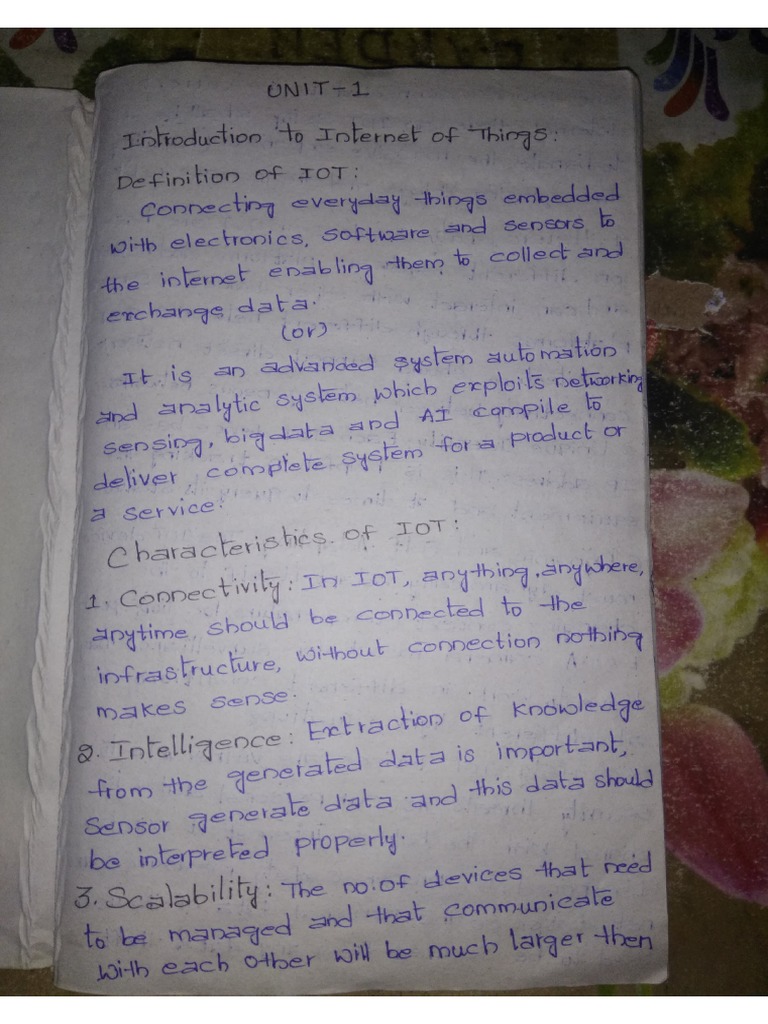 UNIT-1
Introduction to Internet of Things:
Definition of IOT:
Connecting everyday things embedded
with electronics, software and sensors to
the internet enabling them to collect and
exchange data.
(or)
It is an advanced system automation
and analytic system which exploits networking
sensing, bigdata and AI compile to
deliver complete system for a product or
a service.
Characteristics of IOT:
1. Connectivity: In IOT, anything, anywhere,
anytime should be connected to the
infrastructure, without connection nothing
makes sense.
2. Intelligence: Extraction of knowledge
from the generated data is important,
sensor generate data and this data should
be interpreted properly.
3. Scalability: The no. of devices that need
to be managed and that communicate
with each other will be much larger then